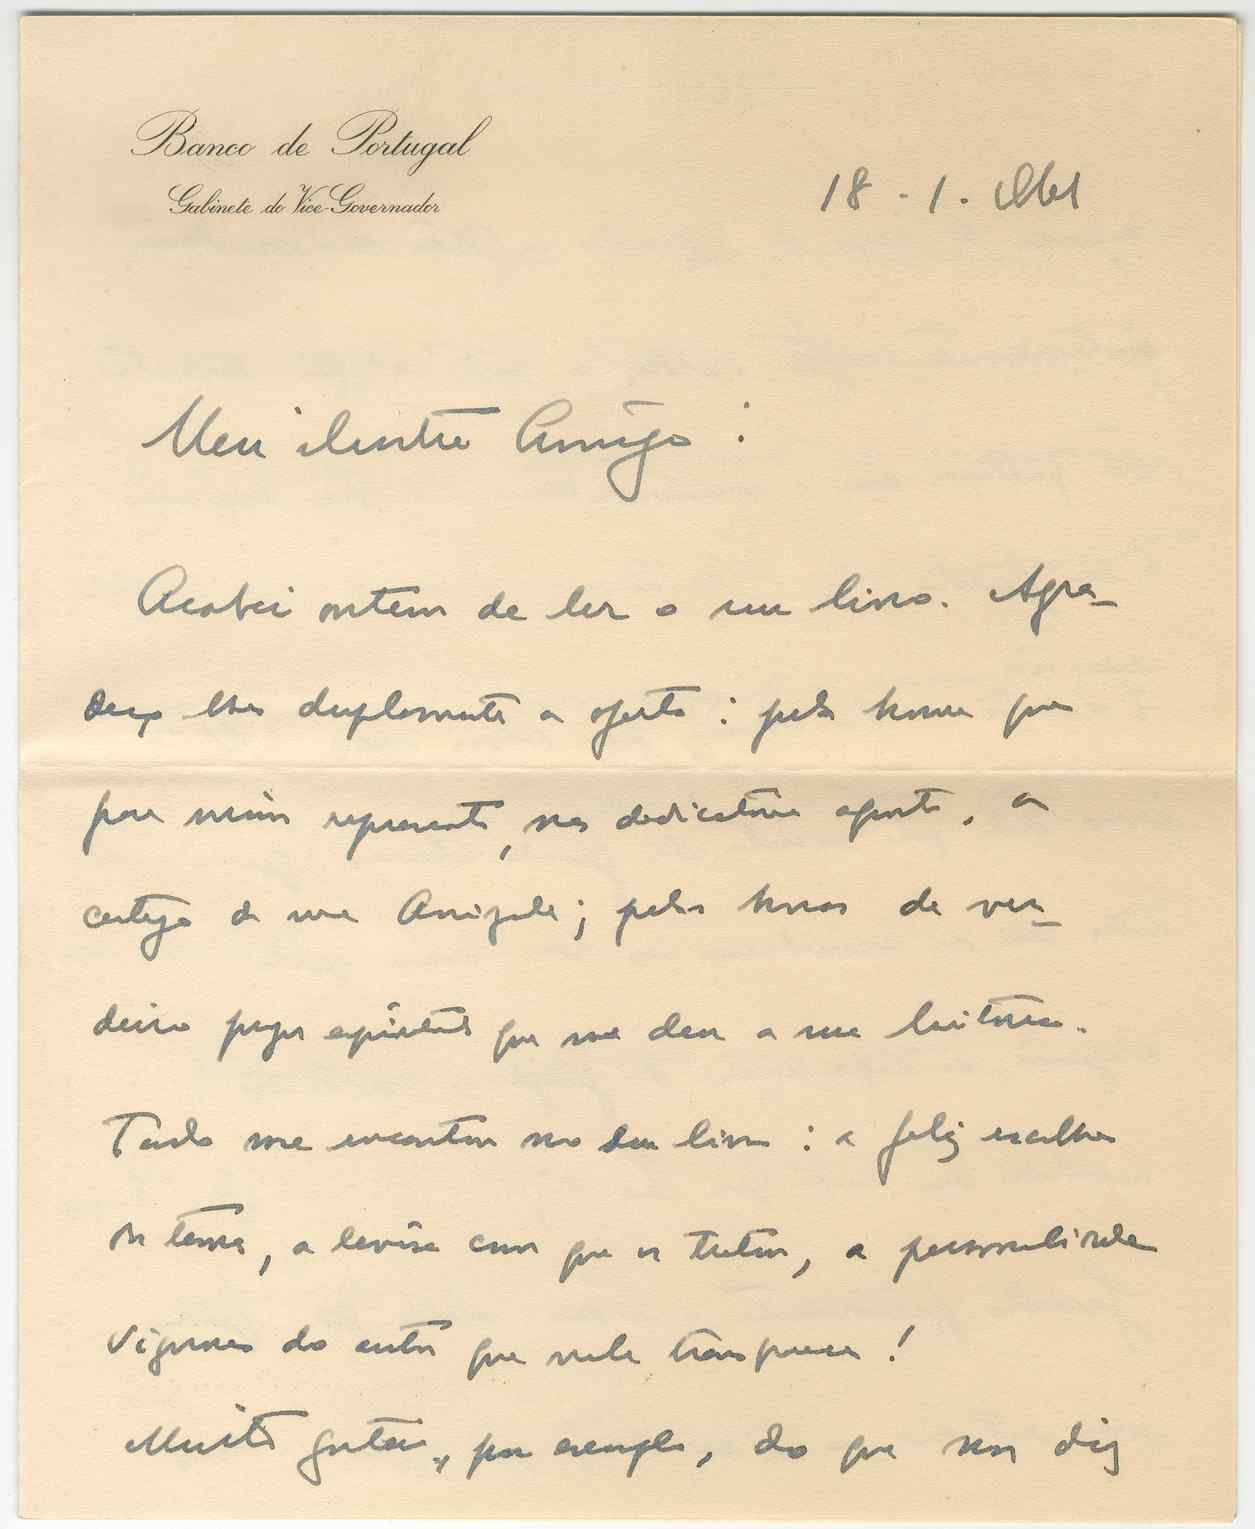 Banco de Portugal
Gabinete do Vice-Governador
18 - 1 -
Meu ilustre Amigo :
Acabei ontem de ler o seu livro. Agra-
deço lhe duplamente a oferta : pela honra que
para mim representa, na dedicatória aposta, a
certeza da sua Amizade ; pelas horas de ver-
deiro prazer espiritual que me deu a sua leitura.
Tudo me encantou no seu livro : a feliz escolha
do tema, a leveza com que o tratou, a personalidade
vigorosa do autor que nele transparece !
Muito gostei, por exemplo, do que nos diz